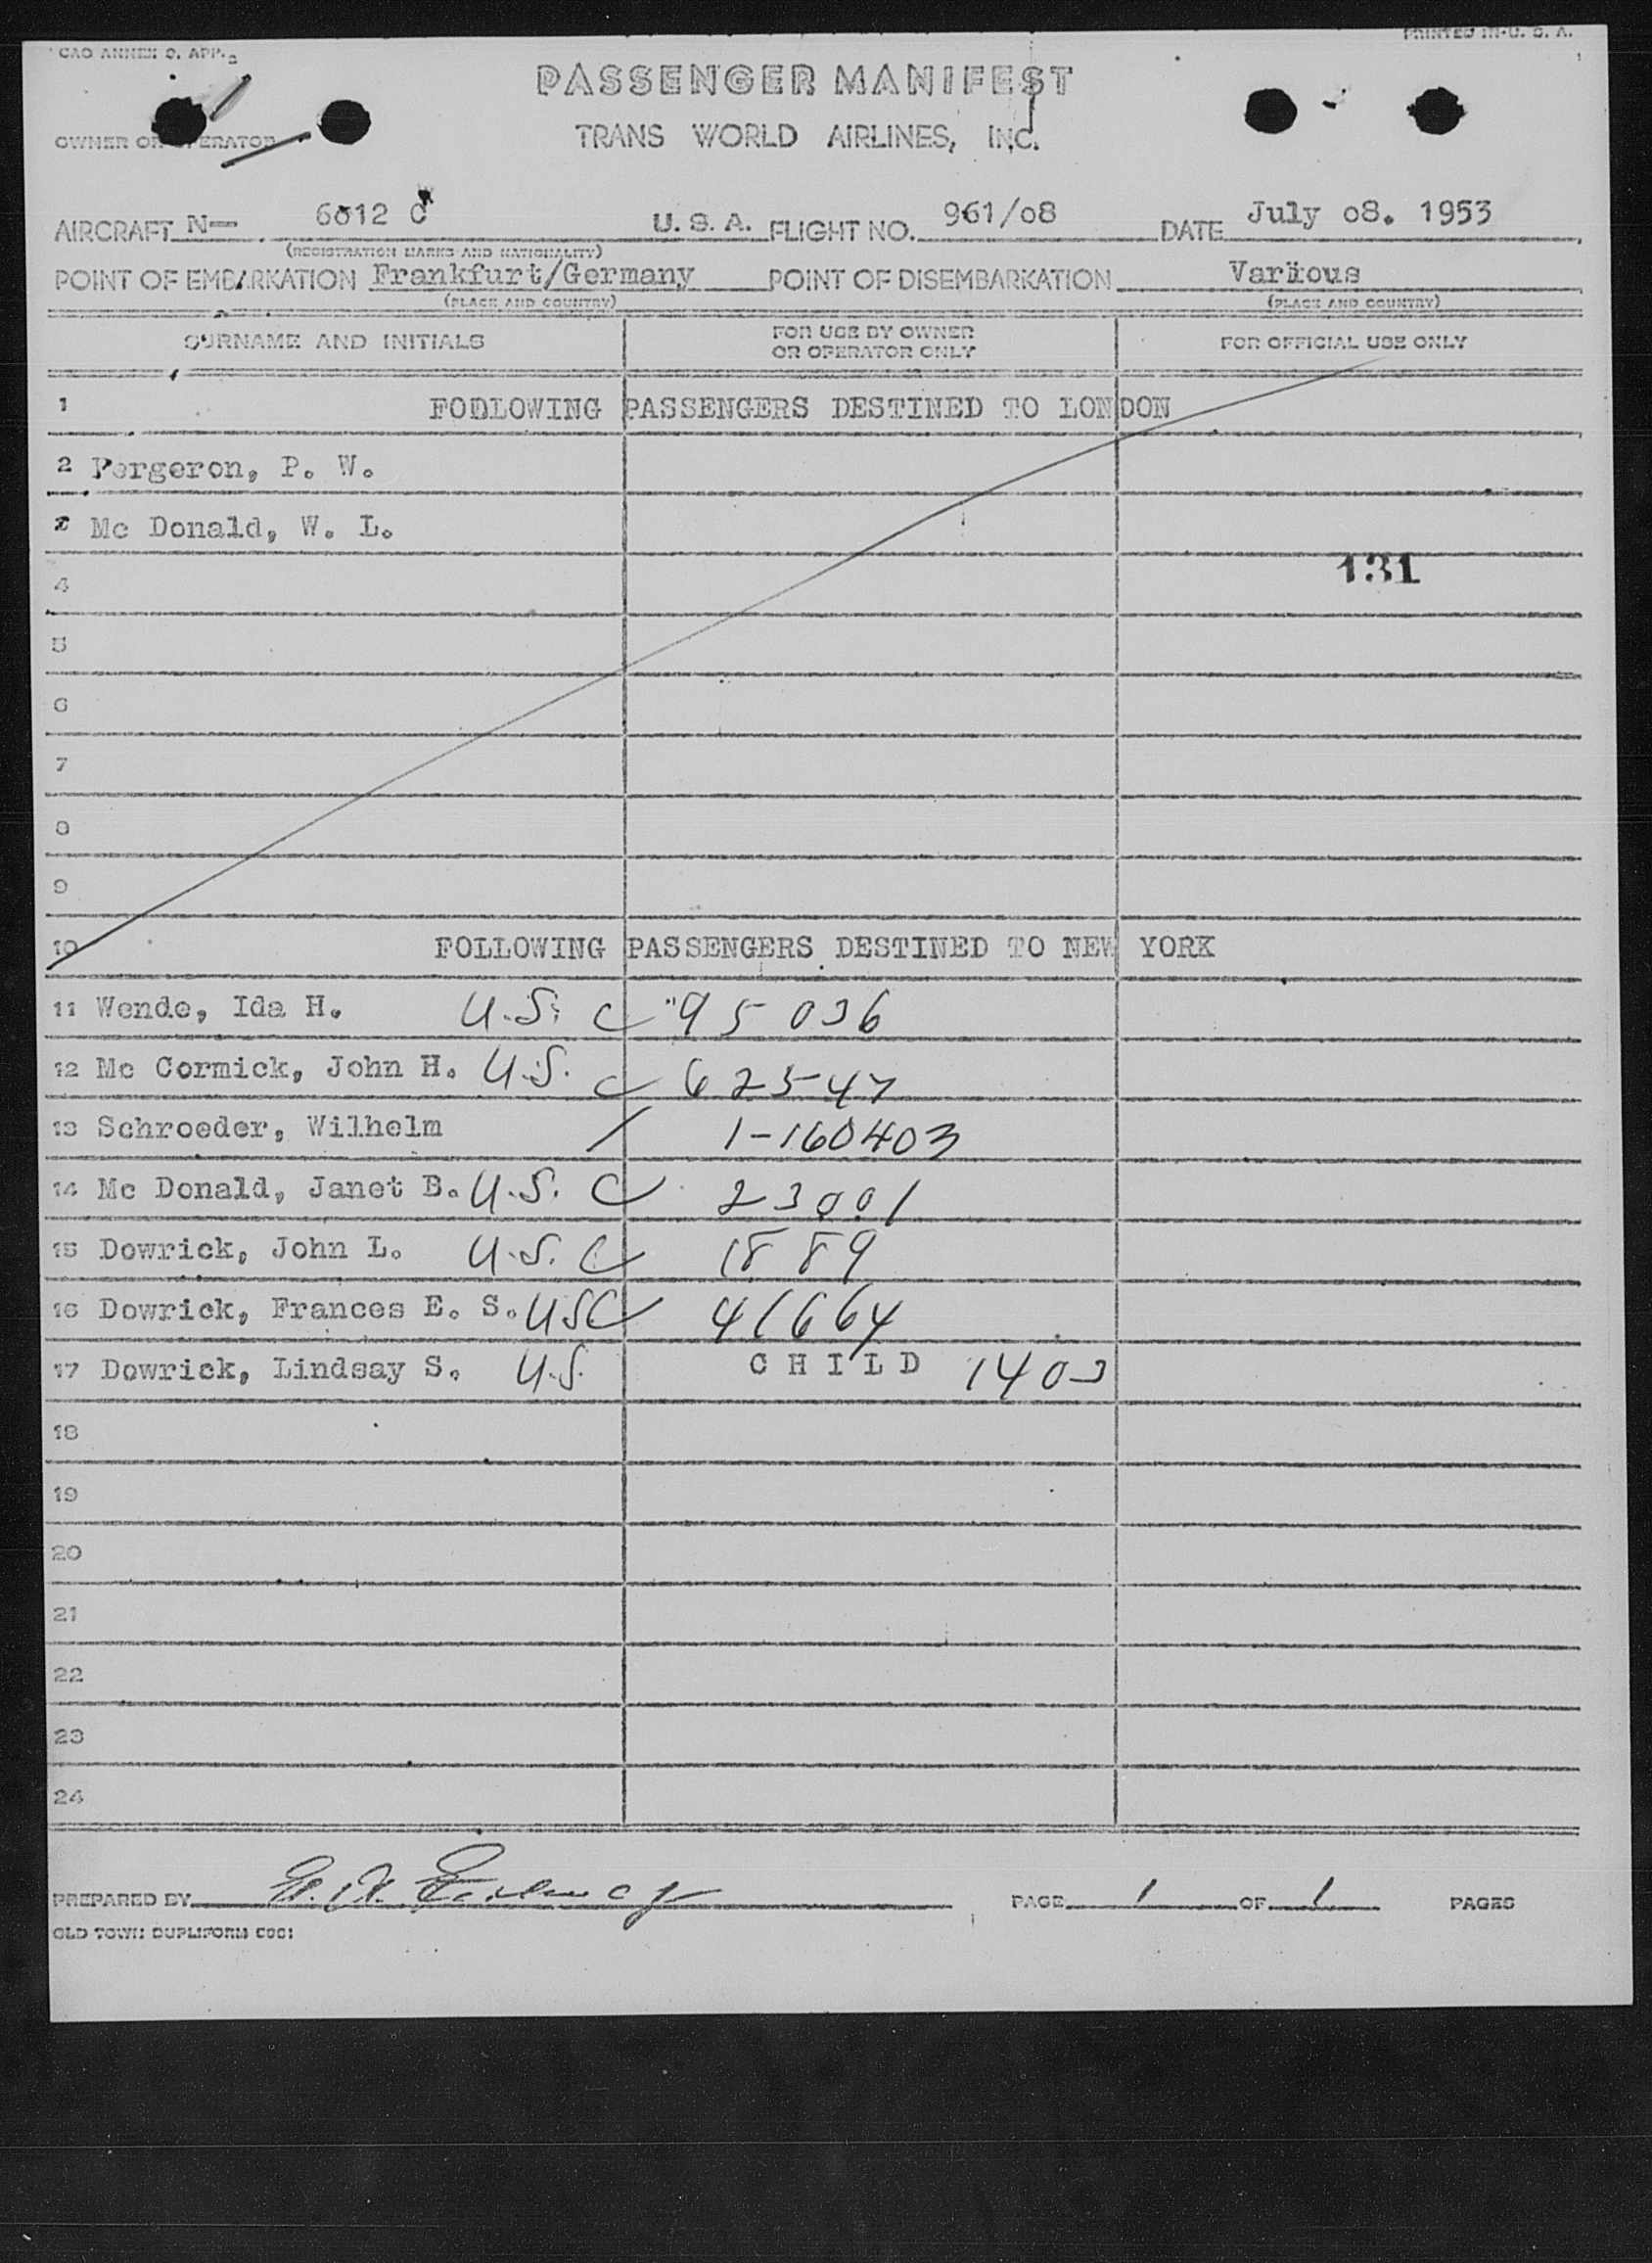 CAO ANNEX 9, APP.
PRINTED IN U. S. A.
PASSENGER MANIFEST
TRANS WORLD AIRLINES, INC.
OWNER OR OPERATOR
AIRCRAFT N— 6012 C U. S. A. FLIGHT NO. 961/08 DATE July 08. 1953
(REGISTRATION MARKS AND NATIONALITY)
POINT OF EMBARKATION Frankfurt/Germany POINT OF DISEMBARKATION Various
(PLACE AND COUNTRY) (PLACE AND COUNTRY)
SURNAME AND INITIALS FOR USE BY OWNER OR OPERATOR ONLY FOR OFFICIAL USE ONLY
1 FODLOWING PASSENGERS DESTINED TO LONDON
2 Pergeron, P. W.
Mc Donald, W. L.
131
4
5
6
7
8
9
10 FOLLOWING PASSENGERS DESTINED TO NEW YORK
11 Wende, Ida H. U.S. C 95036
12 Mc Cormick, John H. U.S. C 62547
13 Schroeder, Wilhelm / 1-160403
14 Mc Donald, Janet B. U.S. C 23001
15 Dowrick, John L. U.S. C 1889
16 Dowrick, Frances E. S. USC 41664
17 Dowrick, Lindsay S. U.S. C H I L D 1403
18
19
20
21
22
23
24
PREPARED BY PAGE 1 OF 1 PAGES
OLD TOWN DUPLIFORM